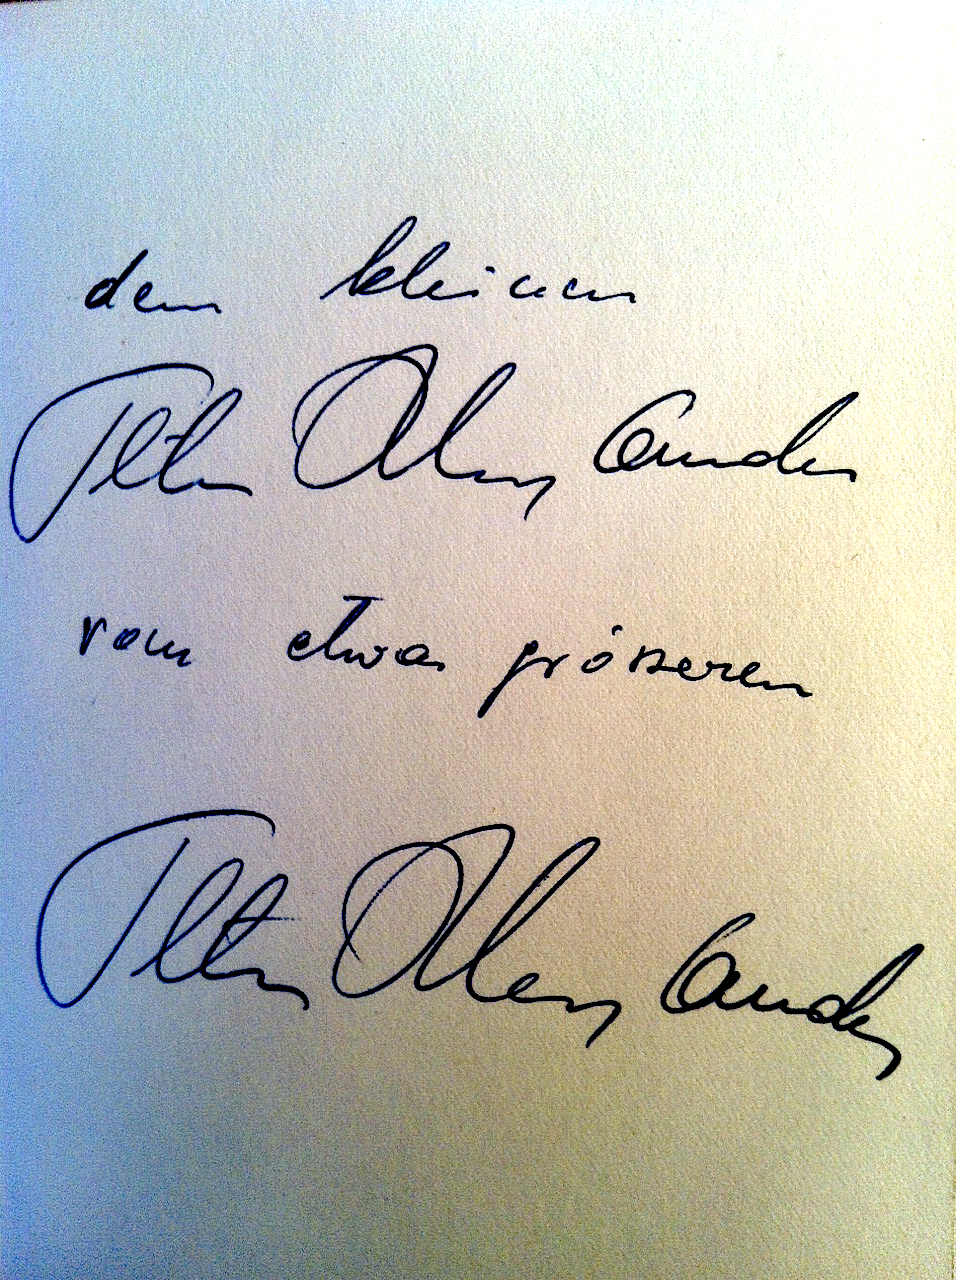 dem kleinen
Peter Alexander
vom etwas grösseren
Peter Alexander